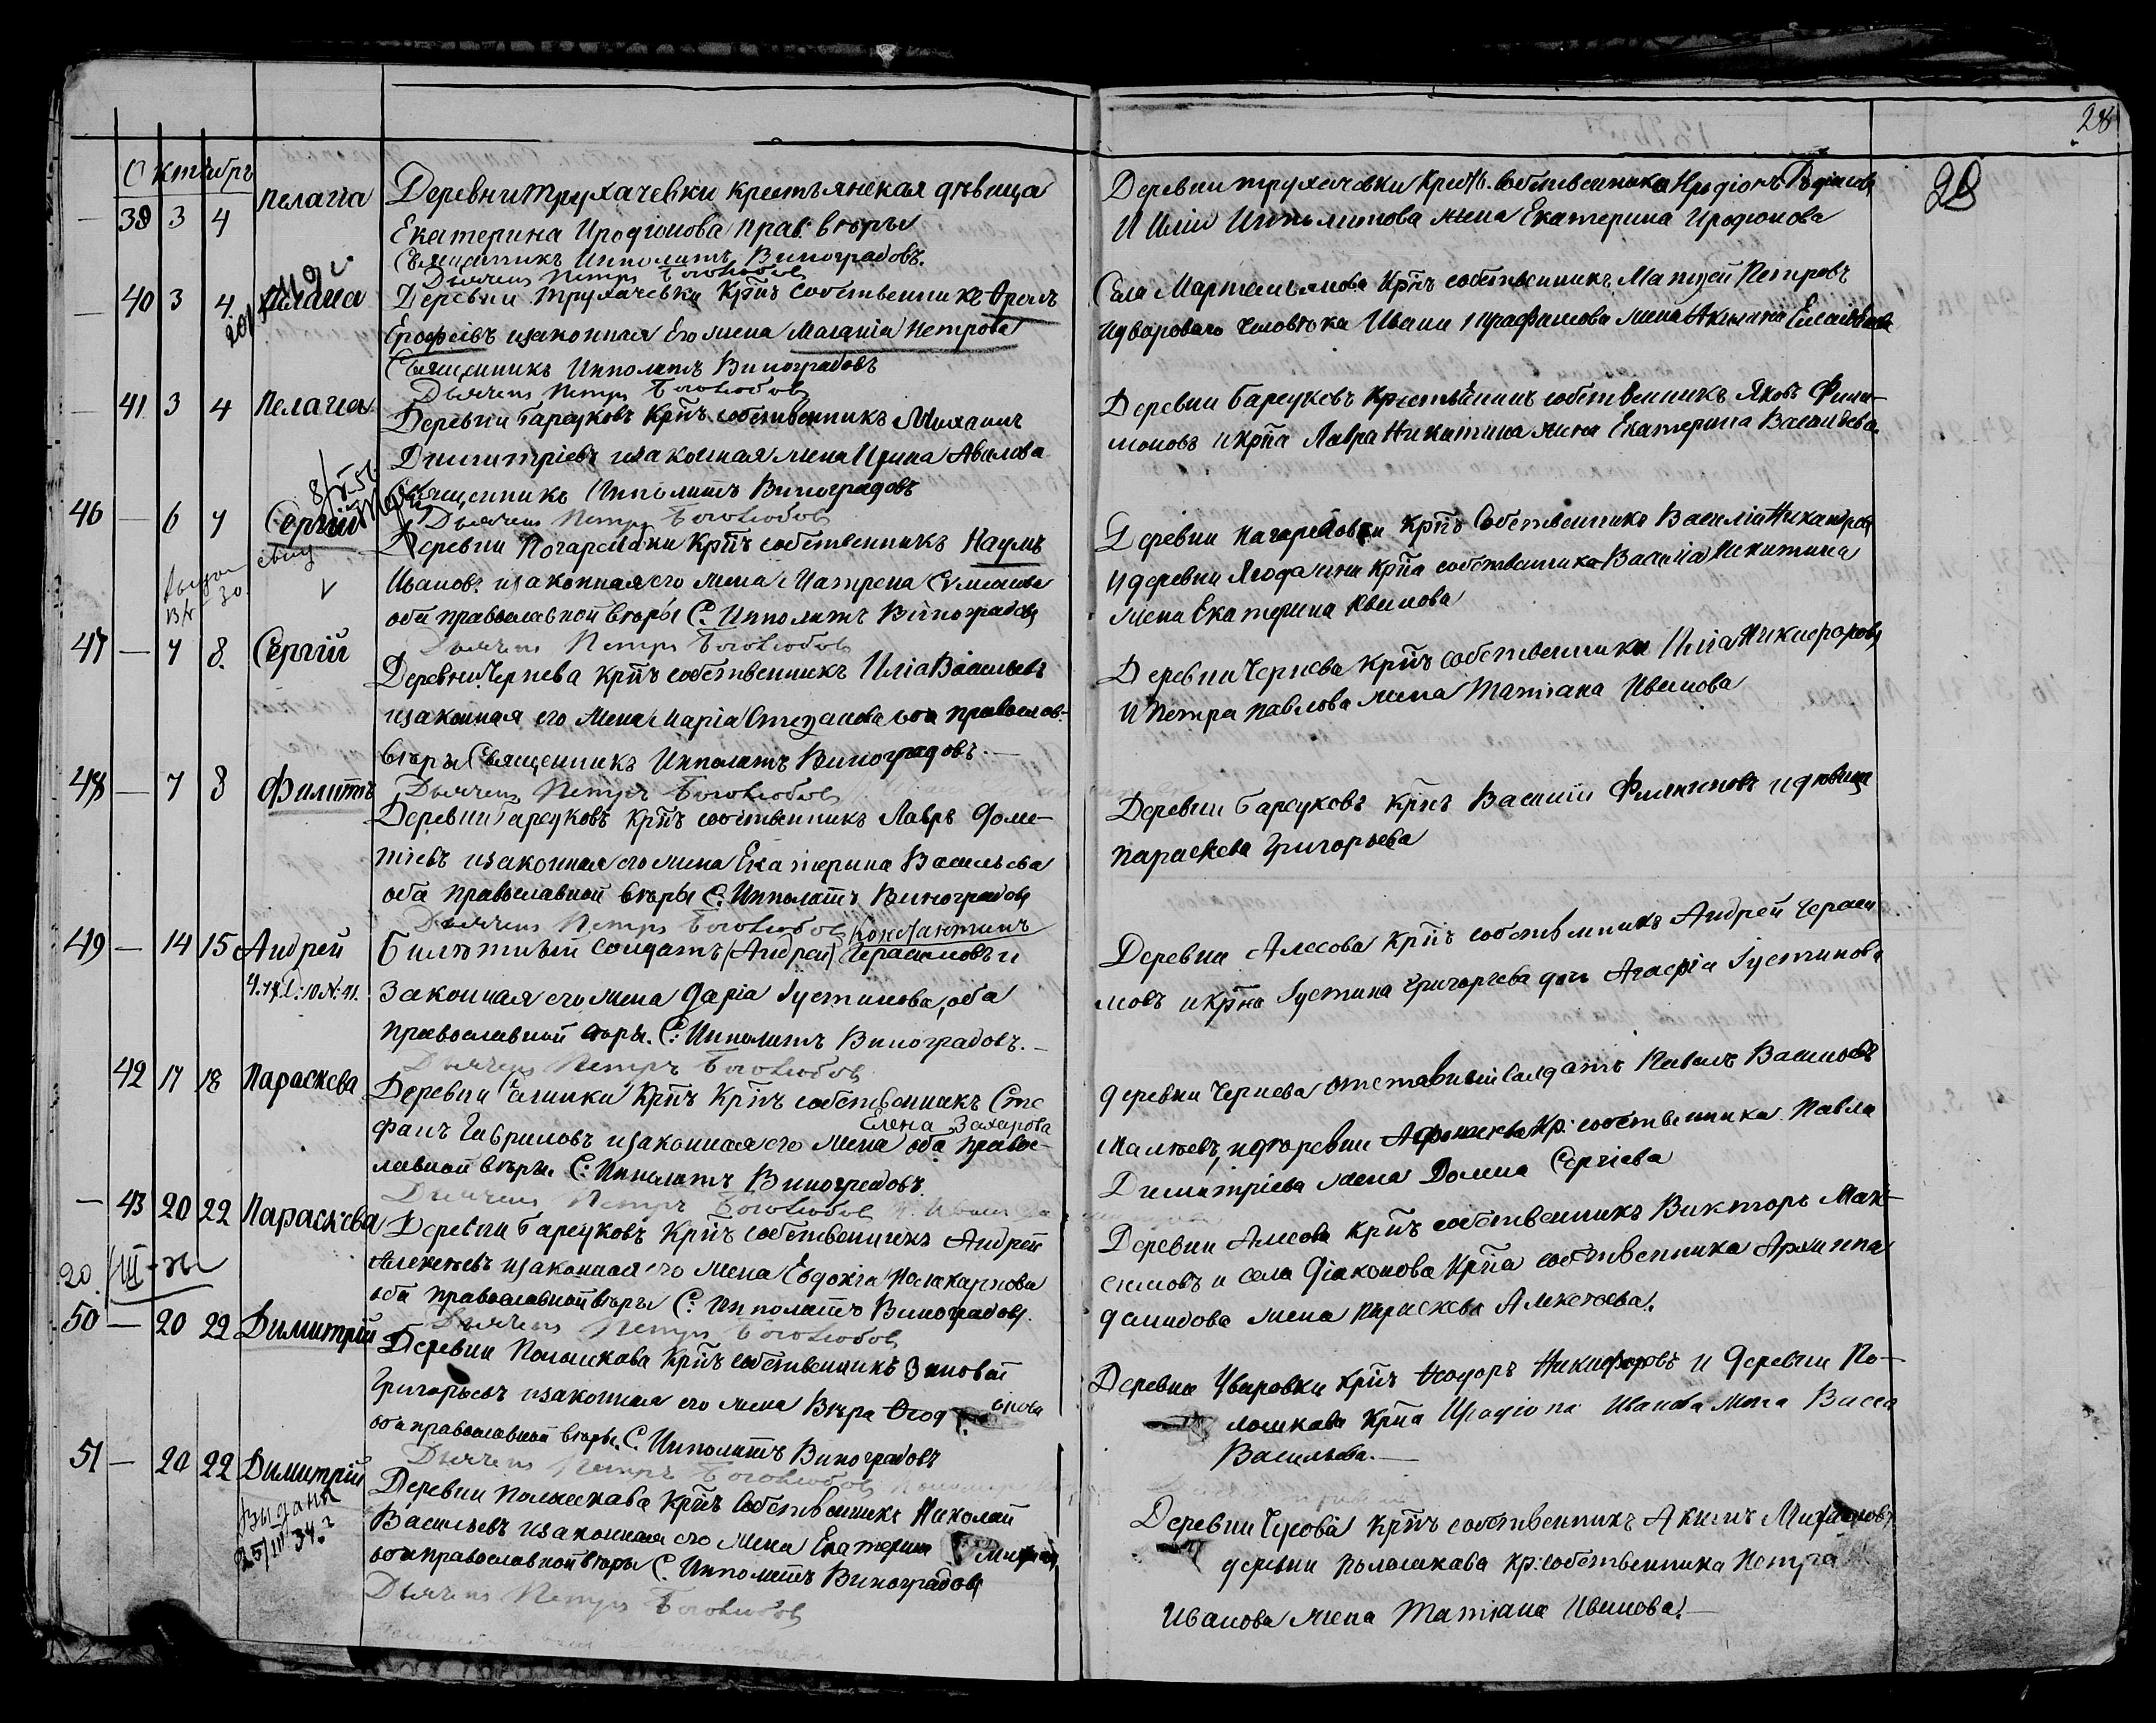 28
Октябрь
39 3 4 Пелагia
Деревни Трухачевки крестьянская дѣвица
Екатерина Иродіонова прав. вѣры
Священникъ Ипполитъ Виноградовъ.
Дьячекъ Петръ Боголюбовъ
40 3 4 Пелагia
Деревни Трухачевки Кр҃нъ собственникъ
Ерофѣевъ и законная его жена Маланiя Петрова
Священникъ Ипполитъ Виноградовъ
Дьячекъ Петръ Боголюбовъ
41 3 4 Пелагia
Деревни Барсуковъ Кр҃нъ собственникъ Михаилъ
Димитріевъ и законная жена Ирина Авилова
Священникъ Ипполитъ Виноградовъ
Дьячекъ Петръ Боголюбовъ
46 — 6 7 Сергій
Деревни Кр҃нъ собственникъ Наумъ
Ивановъ и законная его жена Матрена Симонова
оба православной вѣры С. Ипполитъ Виноградовъ
Дьячекъ Петръ Боголюбовъ
47 — 7 8. Сергій
Деревни Чернева Кр҃нъ собственникъ Илiа Васильевъ
и законная его жена Марiа Степанова оба православ.
вѣры Священникъ Ипполитъ Виноградовъ. —
Дьячекъ Петръ Боголюбовъ
48 — 7 8 Филиппъ
Деревни Барсуковъ Кр҃нъ собственникъ Лавръ Доме-
тіевъ и законная его жена Екатерина Васильева
оба православной вѣры С. Ипполитъ Виноградовъ
Дьячекъ Петръ Боголюбовъ
Константинъ
49 — 14 15 Андрей
Билетный солдатъ (Андрей) Герасимовъ и
Законная его жена Дарiа Іустинова, оба
православной вѣры. С: Ипполитъ Виноградовъ. —
Дьячекъ Петръ Боголюбовъ
42 17 18 Параскева
Деревни Кр҃нъ Кр҃нъ собственникъ Сте
Елена Захарова
фанъ Гавриловъ и законная его жена оба правос-
лавной вѣры С: Ипполитъ Виноградовъ.
Дьячекъ Петръ Боголюбовъ
— 43 20 22 Параскева
Деревни Барсуковъ Кр҃нъ собственникъ Андрей
Алексѣевъ и законная его жена Евдокiа Поликарпова
оба православной вѣры С: Ипполитъ Виноградовъ.
Дьячекъ Петръ Боголюбовъ
50 — 20 22 Димитрій
Деревни Полошкова Кр҃нъ собственникъ Зиновій
Григорьевъ и законная его жена Вѣра
оба православной вѣры. С. Ипполитъ Виноградовъ
Дьячекъ Петръ Боголюбовъ
51 — 20 22 Димитрій
Выдана
25/III 34.г
Деревни Полошкова Кр҃нъ собственникъ Николай
Васильевъ и законная его жена Екатерина
оба православной вѣры С. Ипполитъ Виноградовъ
Дьячекъ Петръ Боголюбовъ
28
Деревни Трухачевки Крест. собственника Иродіонъ
И Илiи Ипполитова жена Екатерина Иродіонова
Села Мартемьянова Кр҃нъ собственникъ Матѳей Петровъ
и двороваго человѣка Ивана жена
Деревни Барсуковъ Крестьянинъ собственникъ Яковъ Фили-
моновъ и кр҃на Лавра Никитина жена Екатерина Васильева
Деревни Кр҃нъ собственникъ Василій
и деревни Кр҃на собственника Василiа Никитина
жена Екатерина
Деревни Чернева Кр҃нъ собственникъ Илiа Никифоровъ
И Петра Павлова жена Татiана Иванова
Деревни Барсуковъ Кр҃нъ Василій и дѣвица
Параскева Григорьева
Деревни Алесова Кр҃нъ собственникъ Андрей Гераси
мовъ и кр҃на Іустина Григорьева дочь Агафiа Іустинова
деревни Чернева отставный Солдатъ Павелъ Васильевъ
и деревни кр: собственника Павла
Димитріева жена Домна Сергіева
Деревни Алесова Кр҃нъ собственникъ Викторъ Мак-
симовъ и села Дiаконова Кр҃на собственника Архиппа
Демидова жена Параскева Алексѣева.
Деревни Уваровки Кр҃нъ Ѳеодоръ Никифоровъ и деревни По-
лошкова Кр҃на Иродіона Иванова жена Васса
Васильева. —
Деревни Кр҃нъ собственникъ Акимъ
деревни Полошкова кр: собственника Петра
Иванова жена Татiана Иванова. —